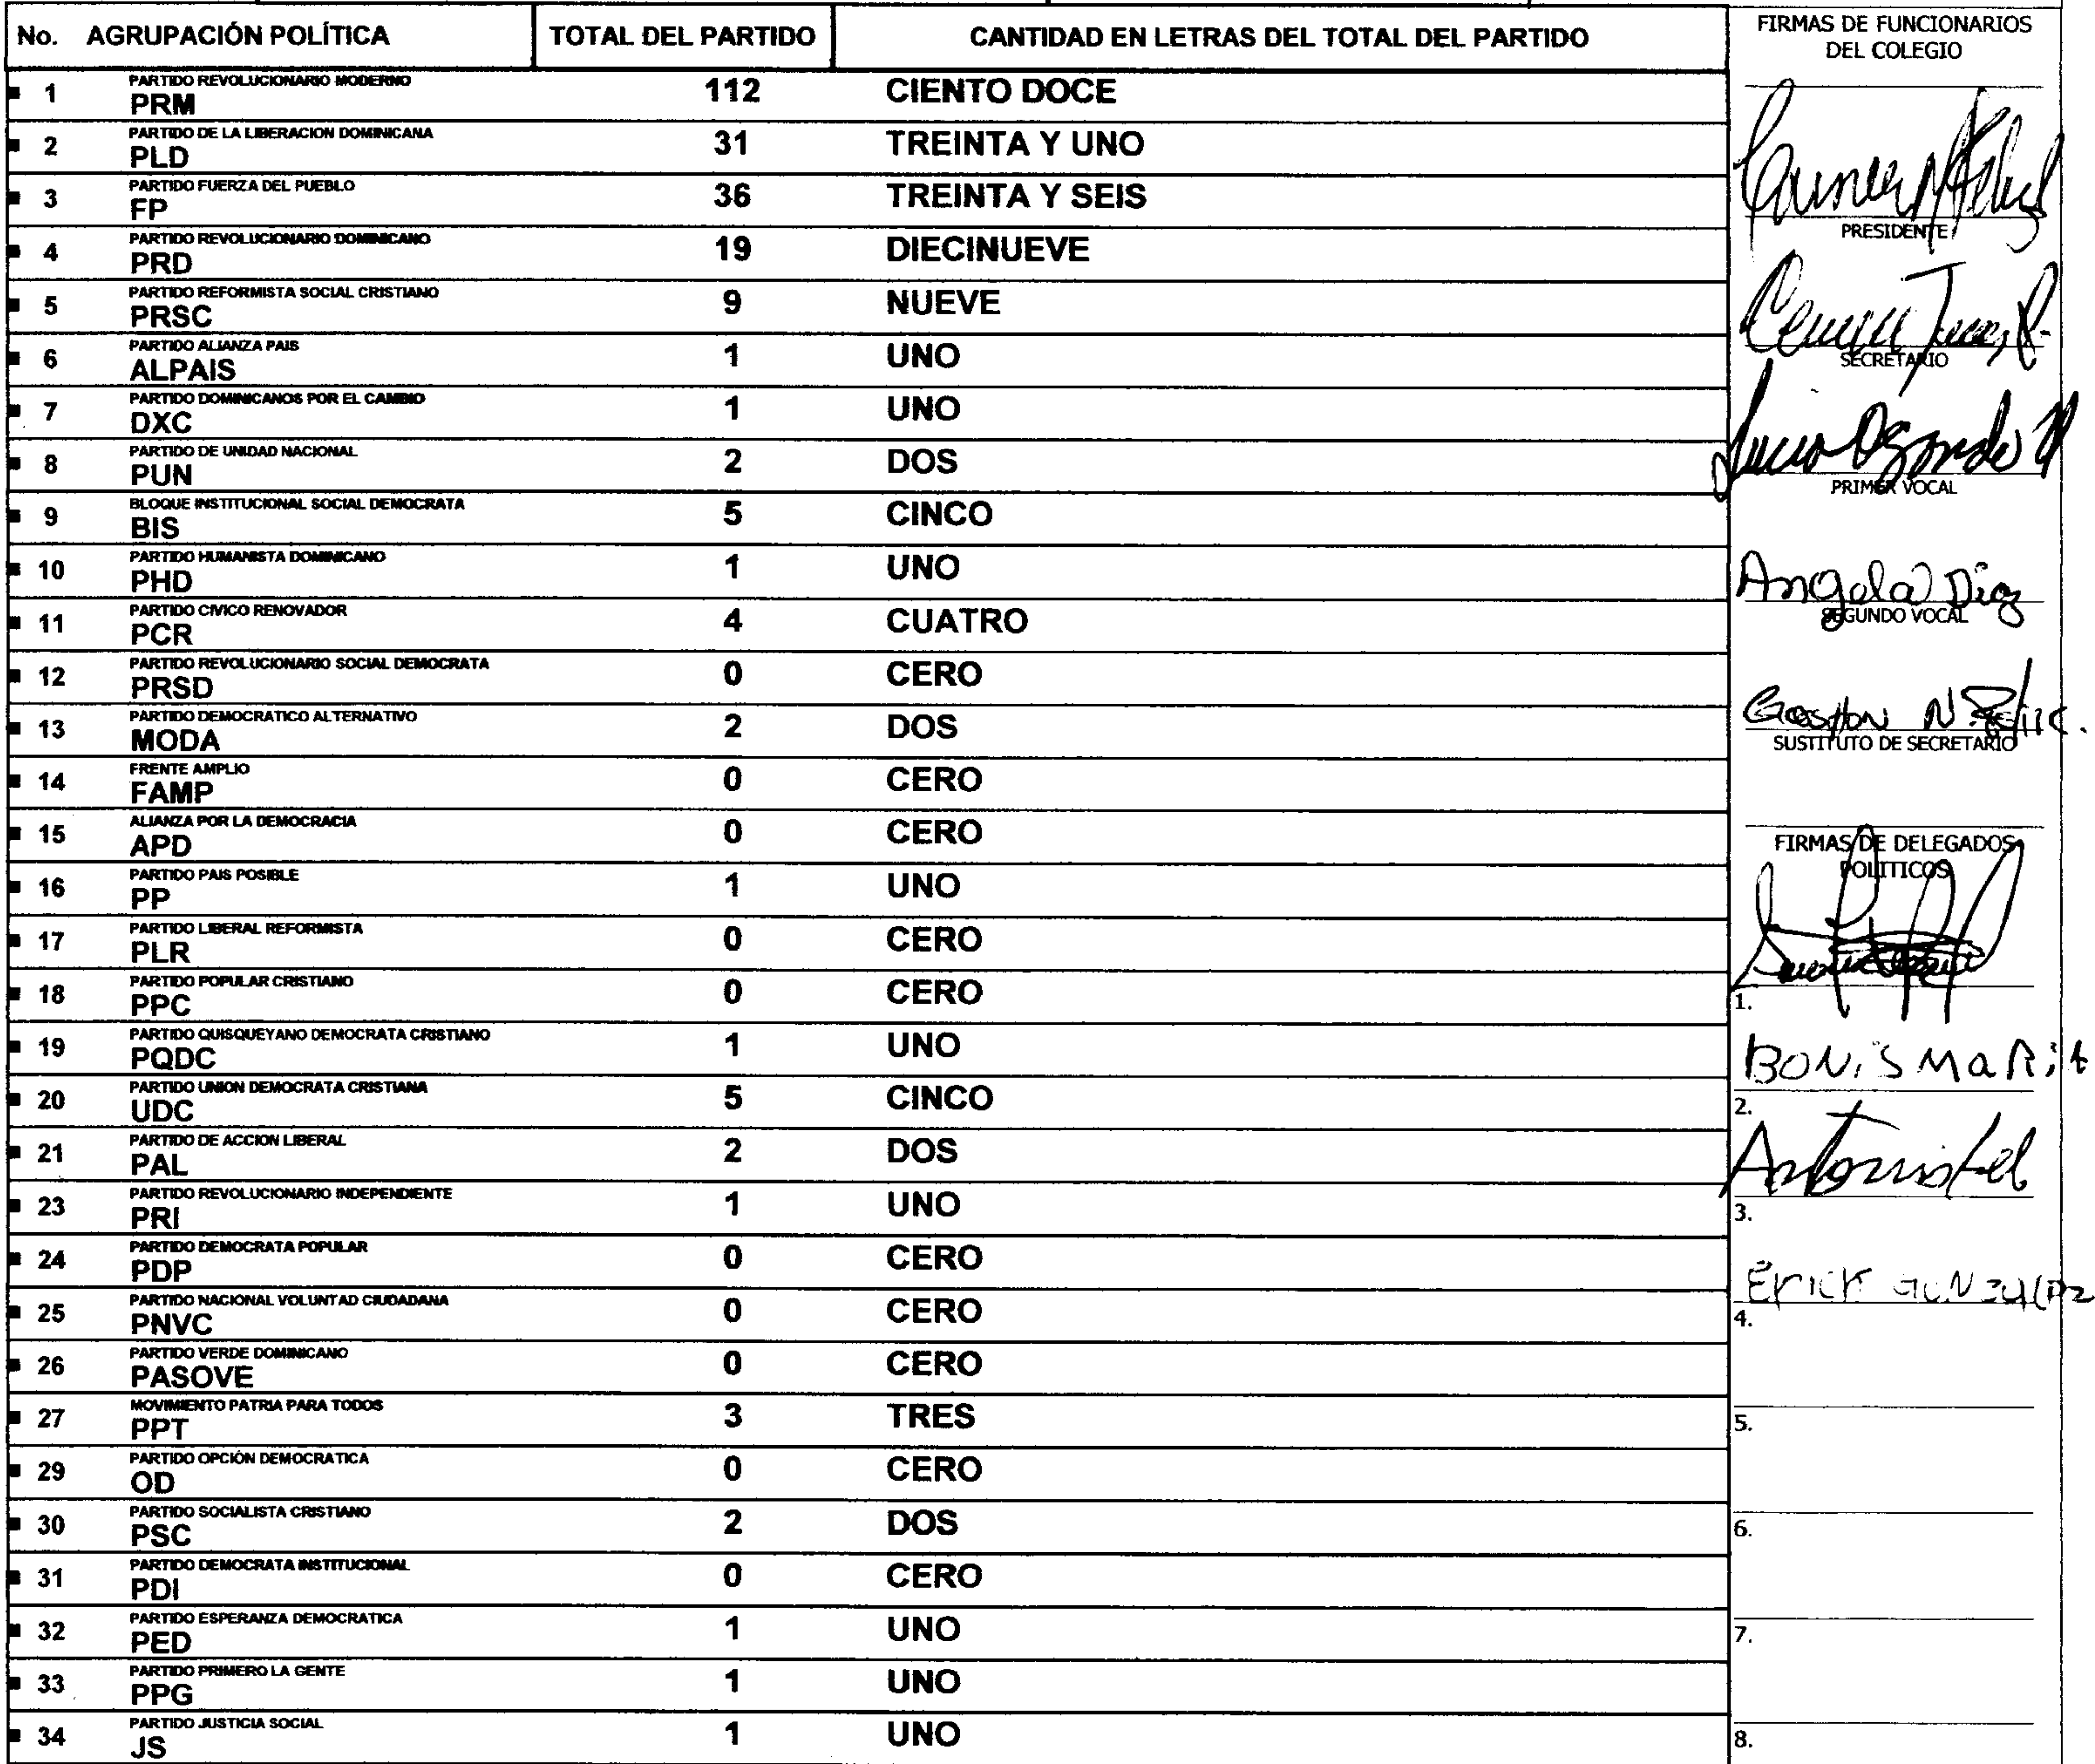 No. AGRUPACIÓN POLÍTICA TOTAL DEL PARTIDO CANTIDAD EN LETRAS DEL TOTAL DEL PARTIDO
PARTIDO REVOLUCIONARIO MODERNO
1 PRM 112 CIENTO DOCE
PARTIDO DE LA LIBERACION DOMINICANA
2 PLD 31 TREINTA Y UNO
PARTIDO FUERZA DEL PUEBLO
3 FP 36 TREINTA Y SEIS
PARTIDO REVOLUCIONARIO DOMINICANO
4 PRD 19 DIECINUEVE
PARTIDO REFORMISTA SOCIAL CRISTIANO
5 PRSC 9 NUEVE
PARTIDO ALIANZA PAIS
6 ALPAIS 1 UNO
PARTIDO DOMINICANOS POR EL CAMBIO
7 DXC 1 UNO
PARTIDO DE UNIDAD NACIONAL
8 PUN 2 DOS
BLOQUE INSTITUCIONAL SOCIAL DEMOCRATA
9 BIS 5 CINCO
PARTIDO HUMANISTA DOMINICANO
10 PHD 1 UNO
PARTIDO CIVICO RENOVADOR
11 PCR 4 CUATRO
PARTIDO REVOLUCIONARIO SOCIAL DEMOCRATA
12 PRSD 0 CERO
PARTIDO DEMOCRATICO ALTERNATIVO
13 MODA 2 DOS
FRENTE AMPLIO
14 FAMP 0 CERO
ALIANZA POR LA DEMOCRACIA
15 APD 0 CERO
PARTIDO PAIS POSIBLE
16 PP 1 UNO
PARTIDO LIBERAL REFORMISTA
17 PLR 0 CERO
PARTIDO POPULAR CRISTIANO
18 PPC 0 CERO
PARTIDO QUISQUEYANO DEMOCRATA CRISTIANO
19 PQDC 1 UNO
PARTIDO UNION DEMOCRATA CRISTIANA
20 UDC 5 CINCO
PARTIDO DE ACCION LIBERAL
21 PAL 2 DOS
PARTIDO REVOLUCIONARIO INDEPENDIENTE
23 PRI 1 UNO
PARTIDO DEMOCRATA POPULAR
24 PDP 0 CERO
PARTIDO NACIONAL VOLUNTAD CIUDADANA
25 PNVC 0 CERO
PARTIDO VERDE DOMINICANO
26 PASOVE 0 CERO
MOVIMIENTO PATRIA PARA TODOS
27 PPT 3 TRES
PARTIDO OPCIÓN DEMOCRATICA
29 OD 0 CERO
PARTIDO SOCIALISTA CRISTIANO
30 PSC 2 DOS
PARTIDO DEMOCRATA INSTITUCIONAL
31 PDI 0 CERO
PARTIDO ESPERANZA DEMOCRATICA
32 PED 1 UNO
PARTIDO PRIMERO LA GENTE
33 PPG 1 UNO
PARTIDO JUSTICIA SOCIAL
34 JS 1 UNO
FIRMAS DE FUNCIONARIOS
DEL COLEGIO
PRESIDENTE
SECRETARIO
PRIMER VOCAL
Angela Diaz
SEGUNDO VOCAL
SUSTITUTO DE SECRETARIO
FIRMAS DE DELEGADOS
POLITICOS
1.
BONIS MaRit
2.
3.
Erick
4.
5.
6.
7.
8.